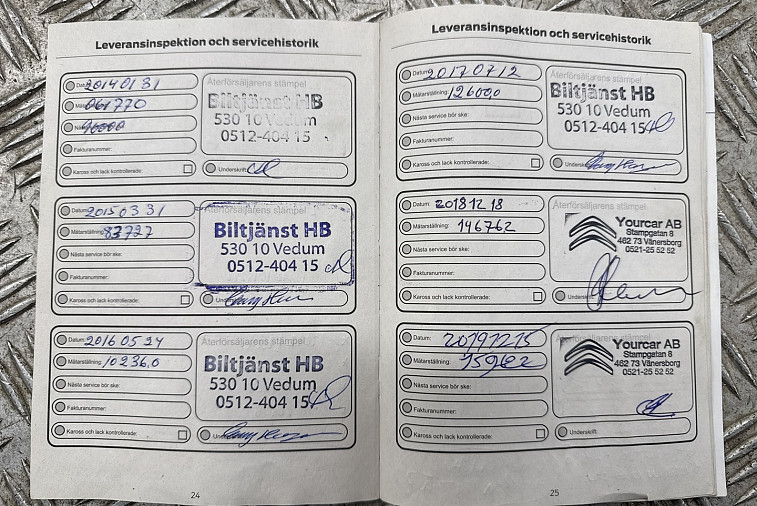 Leveransinspektion och servicehistorik
Datum: 20140131
Återförsäljarens stämpel
Mätarställning: 061770
Biltjänst HB
530 10 Vedum
0512-404 15
Nästa service bör ske: 90000
Fakturanummer:
Kaross och lack kontrollerade:
Underskrift:
Datum: 20150331
Återförsäljarens stämpel
Mätarställning: 83727
Biltjänst HB
530 10 Vedum
0512-404 15
Nästa service bör ske:
Fakturanummer:
Kaross och lack kontrollerade:
Datum: 20160524
Återförsäljarens stämpel
Mätarställning: 102360
Biltjänst HB
530 10 Vedum
0512-404 15
Nästa service bör ske:
Fakturanummer:
Kaross och lack kontrollerade:
Underskrift:
24
Leveransinspektion och servicehistorik
Datum: 20170712
Återförsäljarens stämpel
Mätarställning: 126000
Biltjänst HB
530 10 Vedum
0512-404 15
Nästa service bör ske:
Fakturanummer:
Kaross och lack kontrollerade:
Underskrift:
Datum: 20181218
Återförsäljarens stämpel
Mätarställning: 146762
Yourcar AB
Stampgatan 8
462 73 Vänersborg
0521-25 52 52
Nästa service bör ske:
Fakturanummer:
Kaross och lack kontrollerade:
Underskrift:
Datum: 20191215
Återförsäljarens stämpel
Mätarställning:
Yourcar AB
Stampgatan 8
462 73 Vänersborg
0521-25 52 52
Nästa service bör ske:
Fakturanummer:
Kaross och lack kontrollerade:
Underskrift:
25